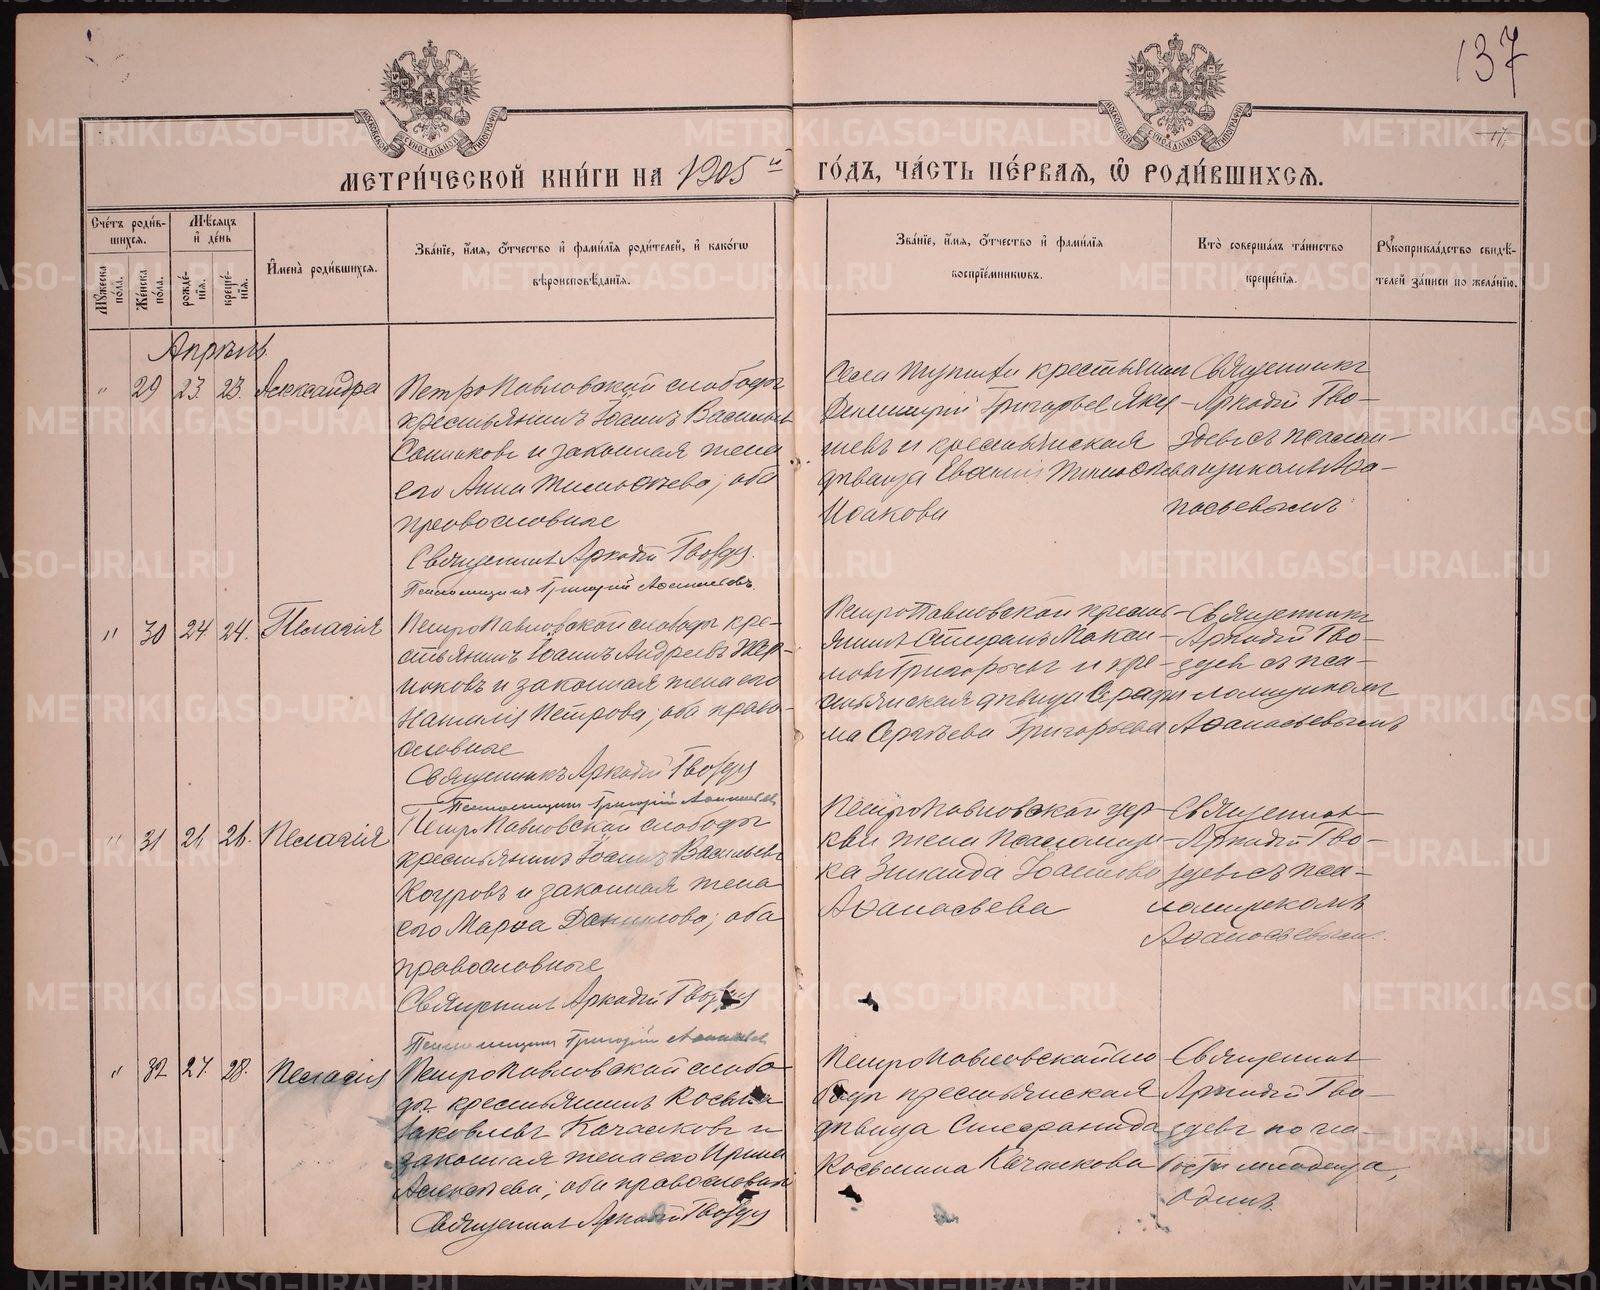 137
МЕТРИ́ЧЕСКОЙ КНИ́ГИ НА 1905 й ГО́ДЪ, ЧА́СТЬ ПЕ́РВАѦ, Ѡ҆ РОДИ́ВШИХСѦ.
Сче́тъ роди́вшихся.
Мꙋ́жеска по́ла.
Же́нска по́ла.
Мѣ́сѧцъ и҆ де́нь
рожде́нїѧ.
креще́нїѧ.
И҆мена̀ роди́вшихсѧ.
Зва́нїе, и҆́мѧ, ѻ҆́тчество и҆ фами́лїѧ роди́телей, и҆ како́гѡ
вѣроисповѣ́данїѧ.
Зва́нїе, и҆́мѧ, ѻ҆́тчество и҆ фами́лїѧ
воспрїе́мникѡвъ.
Кто̀ соверша́лъ та́инство
креще́нїѧ.
Рꙋкоприкла́дство свидѣ́-
телей за́писи по жела́нїю.
Апрѣль
" 29 23. 23. Александра
Петропавловской слободы
крестьянинъ Іоаннъ Васильевъ
и законная жена
его Анна Тимофеева; оба
православные
Священникъ Аркадій
Псаломщикъ Григорій Аѳанасьевъ
Села крестьянинъ
Димитрій Григорьев
и крестьянская
дѣвица Евгенія
Исакова
Священникъ
Аркадій Гво-
здевъ съ псалом-
щикомъ Аѳа-
насьевымъ
" 30 24 24. Пелагія
Петропавловской слободы кре-
стьянинъ Іоаннъ Андреевъ
и законная жена его
Наталія Петрова; оба право-
славные
Священникъ Аркадій
Псаломщикъ Григорій Аѳанасьев
Петропавловской кресть-
янинъ Стефанъ Макси-
мовъ Григорьевъ и кре-
стьянская дѣвица Серафи-
ма Сергѣева Григорьева
Священникъ
Аркадій Гво-
здевъ съ пса-
ломщикомъ
Аѳанасьевымъ
" 31 26. Пелагія
Петропавловской слободы
крестьянинъ Іоаннъ Васильевъ
и законная жена
его Марѳа Данилова; оба
православные
Священникъ Аркадій
Псаломщикъ Григорій Аѳанасьев
Петропавловской цер-
кви жена псаломщи-
ка Зинаида Іоаннова
Аѳанасьева
Священникъ
Аркадій Гво-
здевъ съ пса-
ломщикомъ
Аѳанасьевымъ.
" 32 27. 28. Пелагія
Петропавловской слобо-
ды крестьянинъ Косьма
Іаковлевъ Качалковъ и
законная жена его Ирина
Алексѣева; оба православные
Священникъ Аркадій
Петропавловской сло-
боды крестьянская
дѣвица
Косьмина Качалкова
Священникъ
Аркадій Гво-
здевъ по сла-
бости младенца,
одинъ.